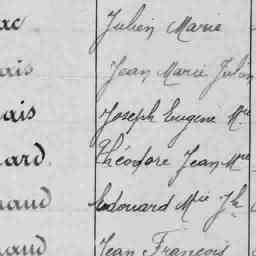 Julien Marie
ais Jean Marie Julien
ais Joseph Eugène Mie
ard Théodore Jean Mie
aud Edouard Mie
aud Jean François